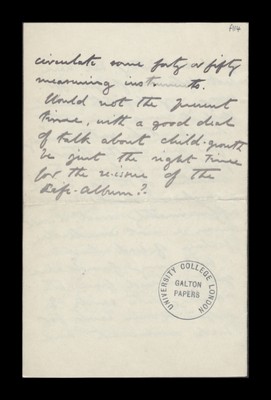 f114
circulate some forty or fifty
measuring instruments.
Would not the present
time, with a good deal
of talk about child-growth
be just the right time
for the re-issue of the
Life-Album?
UNIVERSITY COLLEGE LONDON
GALTON
PAPERS